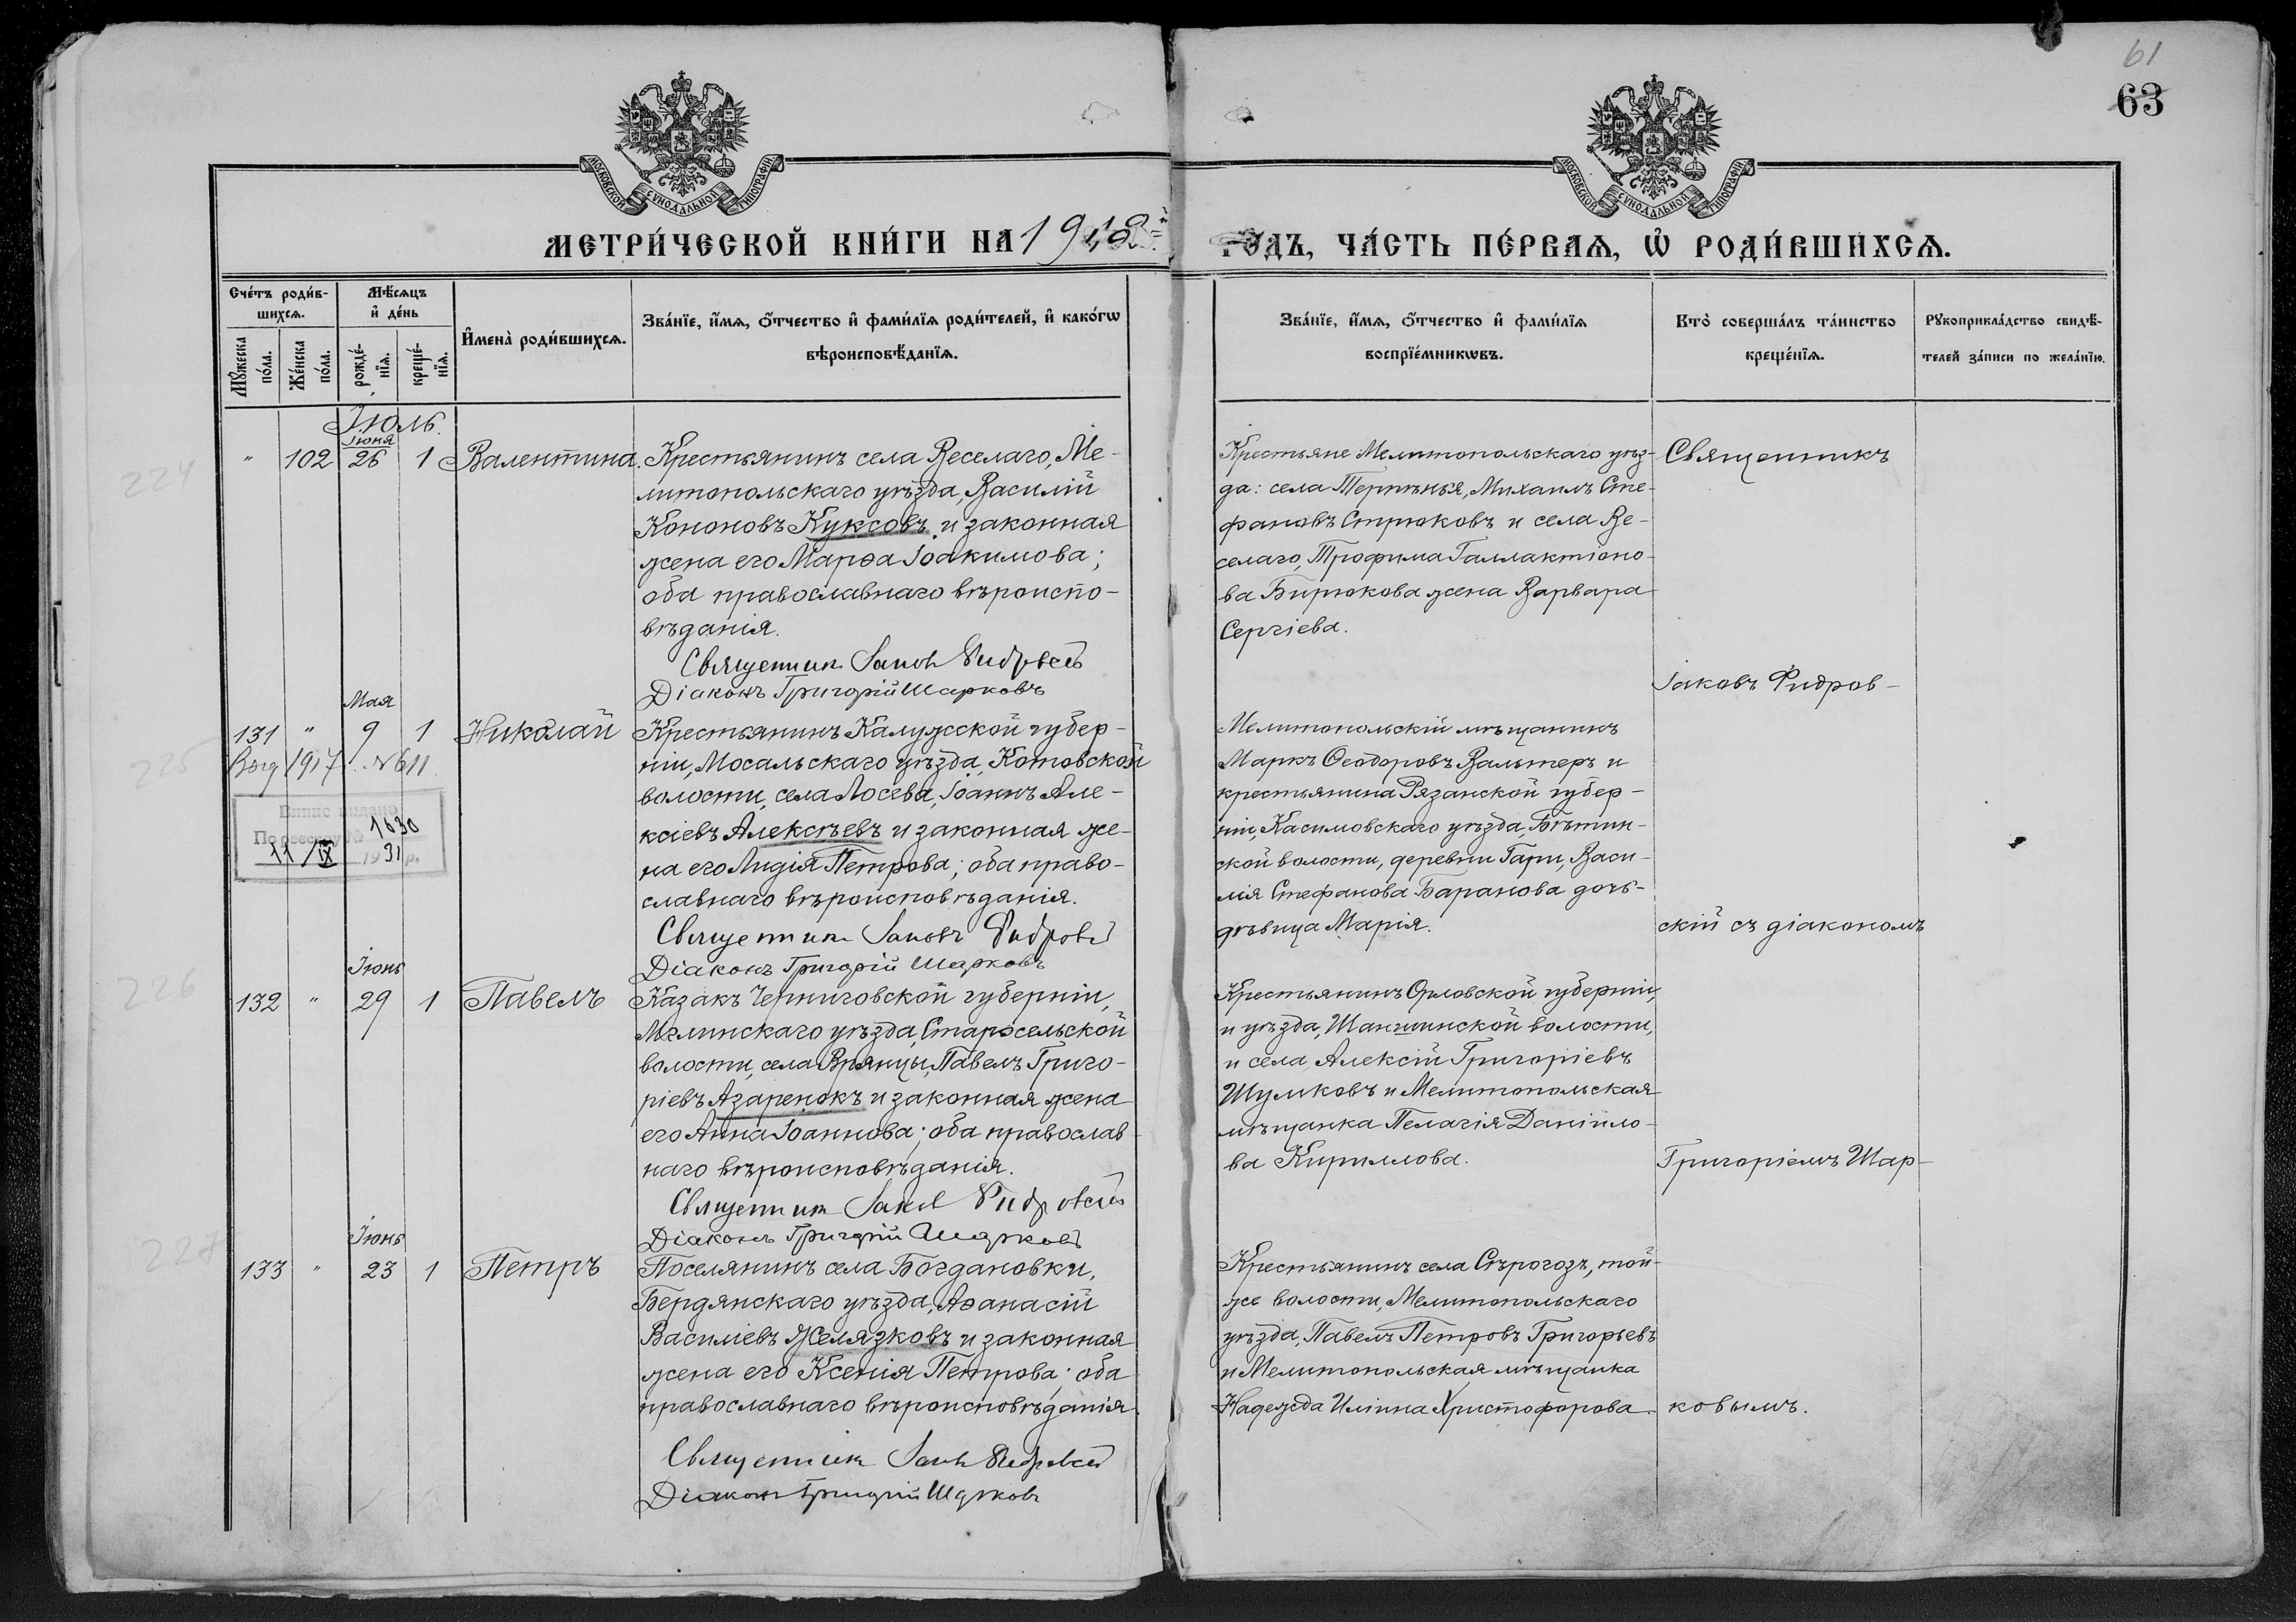 61
63
МОСКОВСКОЙ СѴНОДАЛЬНОЙ ТИПОГРАФІИ
МОСКОВСКОЙ СѴНОДАЛЬНОЙ ТИПОГРАФІИ
МЕТРИ́ЧЕСКОЙ КНИ́ГИ НА 1918й
ГОДЪ, ЧА́СТЬ ПЕ́РВАѦ, Ѡ҆ РОДИ́ВШИХСѦ.
Сче́тъ роди́в-
шихсѧ.
Мꙋ́жеска по́ла.
Же́нска по́ла.
Мѣ́сѧцъ
и҆ де́нь
рожде́-нїѧ.
креще́-нїѧ.
И҆мена̀ роди́вшихсѧ.
Зва́нїе, и҆́мѧ, ѻ҆́тчество и҆ фами́лїѧ роди́телей, и҆ како́гѡ
вѣроисповѣ́данїѧ.
Зва́нїе, и҆́мѧ, ѻ҆́тчество и҆ фами́лїѧ
воспрїе́мникѡвъ.
Кто̀ соверша́лъ та́инство
креще́нїѧ.
Рꙋкоприкла́дство свидѣ́-
телей за́писи по жела́нїю.
Іюль.
Іюня
224
" 102 26 1 Валентина.
Крестьянинъ села Веселаго, Ме-
литопольскаго уѣзда, Василій
Кононовъ Куксовъ и законная
жена его Марѳа Іоакимова;
оба православнаго вѣроиспо-
вѣданія.
Священник Іаковъ Фидровскій
Діаконъ Григорій Шарковъ
Крестьяне Мелитопольскаго уѣз-
да: села Терпѣнья, Михаилъ Сте-
фановъ Стрюковъ и села Ве-
селаго, Трофима Галлактіоно-
ва Бирюкова жена Варвара
Сергіева.
Священникъ
Іаковъ Фидров-
Мая
225
131 " 9 1 Николай
Вход 1917 №611
1630
11/IX 1931 р.
Крестьянинъ Калужской губер-
ніи, Мосальскаго уѣзда, Котовской
волости, села Лосева, Іоаннъ Але-
ксіевъ Алексѣевъ и законная же-
на его Лидія Петрова; оба право-
славнаго вѣроисповѣданія.
Священник Іаковъ Фидровскій
Діаконъ Григорій Шарковъ
Мелитопольскій мѣщанинъ
Маркъ Ѳеодоровъ Вальтеръ и
крестьянина Рязанской губер-
ніи, Касимовскаго уѣзда, Бѣтин-
ской волости, деревни Гари, Васи-
лія Стефанова Баранова дочь-
дѣвица Марія.
скій съ діакономъ
Іюнь
226
132 " 29 1 Павелъ
Казакъ Черниговской губерніи,
Мглинскаго уѣзда, Старосельской
волости, села Врянцы, Павелъ Григо-
ріевъ Азаренокъ и законная жена
его Анна Іоаннова; оба православ
наго вѣроисповѣданія.
Священник Іаков Фидровскій
Діаконъ Григорій Шарковъ
Крестьянинъ Орловской губерніи,
и уѣзда, Шахшинской волости,
и села, Алексій Григоріевъ
Шулковъ и Мелитопольская
мѣщанка Пелагія Даніило-
ва Кириллова.
Григоріемъ Шар-
Іюнь
227
133 " 23 1 Петръ
Поселянинъ села Богдановки,
Бердянскаго уѣзда, Аѳанасій
Василіевъ Желязковъ и законная
жена его Ксенія Петрова; оба
православнаго вѣроисповѣданія.
Священник Іаковъ Фидровскій
Діаконъ Григорій Шарковъ
Крестьянинъ села Сѣрогозъ, той-
же волости, Мелитопольскаго
уѣзда, Павелъ Петровъ Григорьевъ
и Мелитопольская мѣщанка
Надежда Иліина Христофорова.
ковымъ.